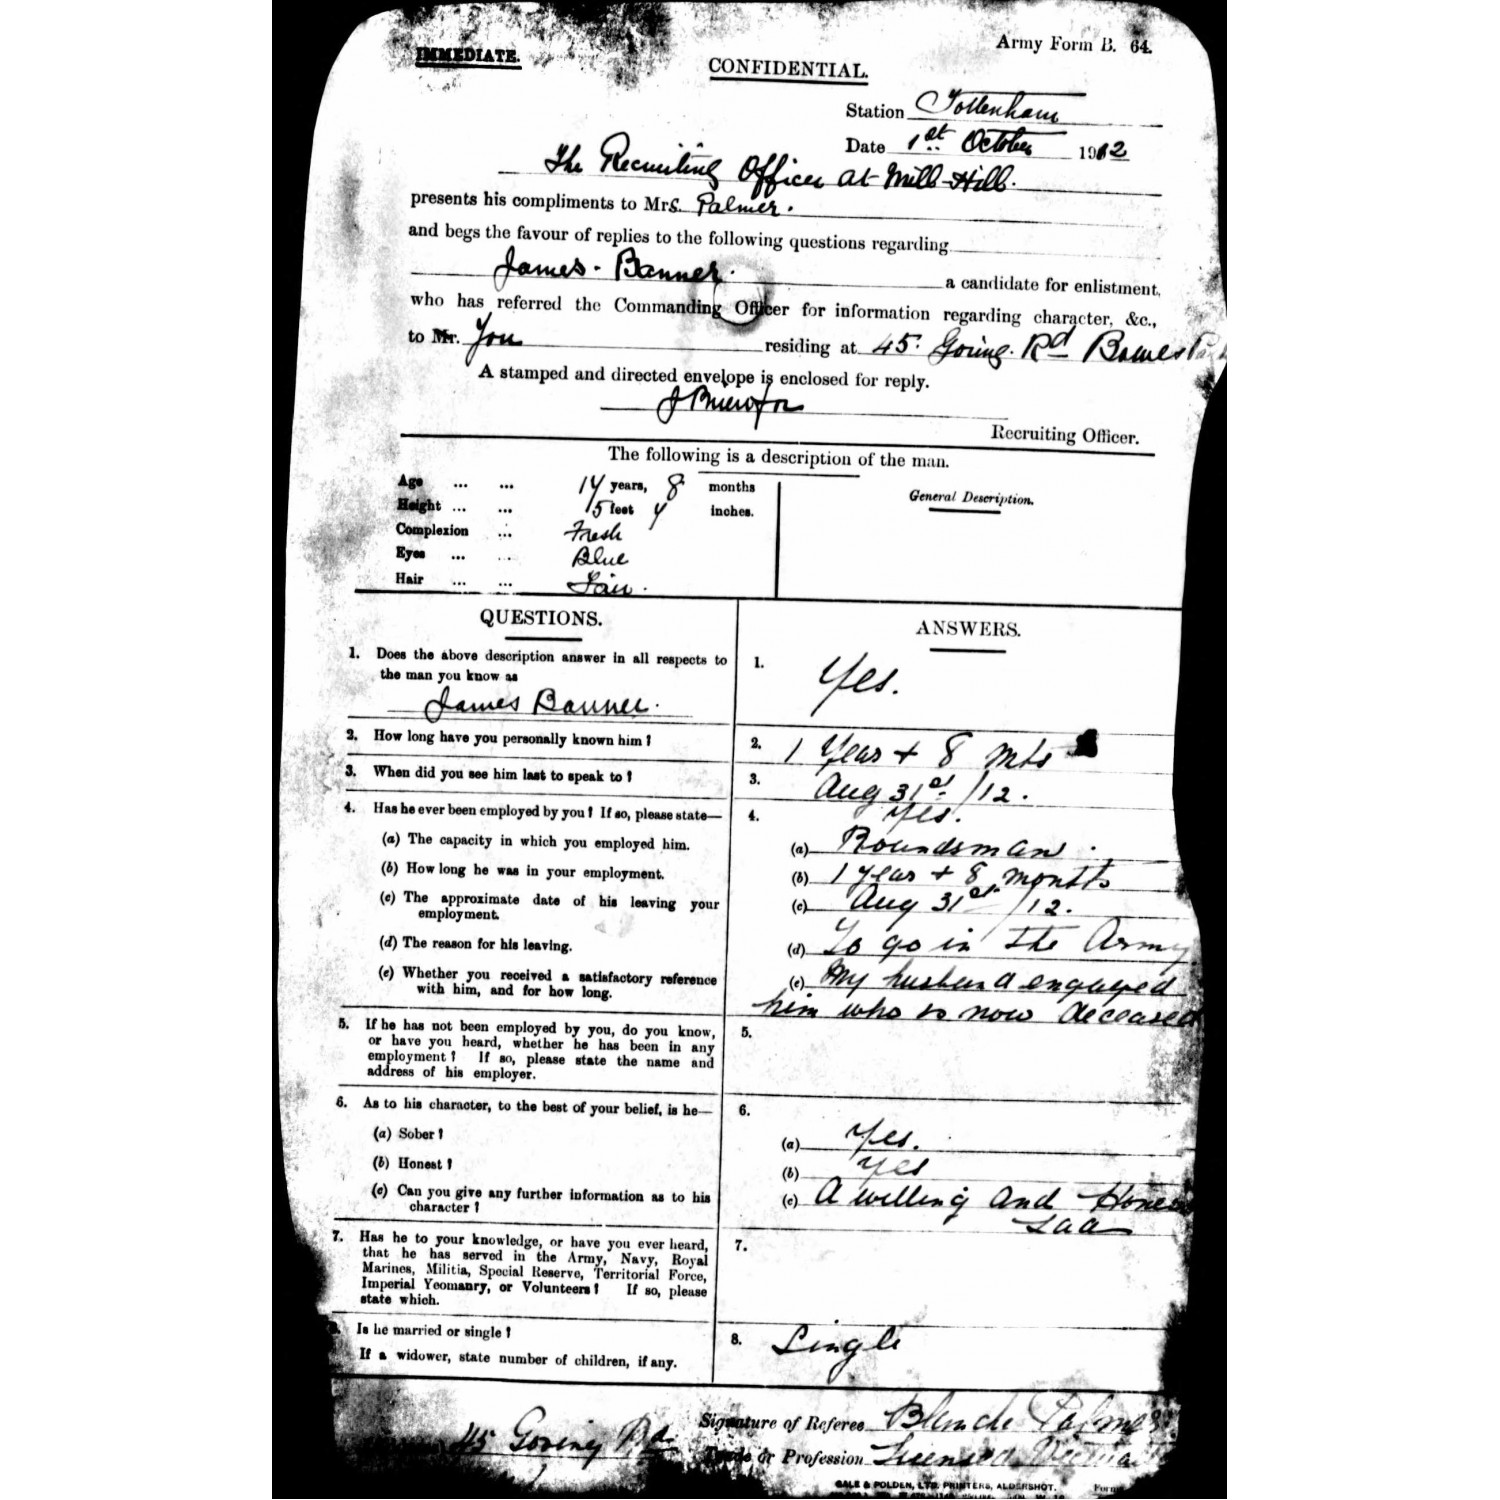 Army Form B. 64.
IMMEDIATE.
CONFIDENTIAL.
Station Tottenham
Date 1st October 1912
The Recruiting Officer at Mill Hill.
presents his compliments to Mrs. Palmer.
and begs the favour of replies to the following questions regarding
James Banner. a candidate for enlistment,
who has referred the Commanding Officer for information regarding character, &c.,
to Mr. You residing at 45 Goring Rd Bowes
A stamped and directed envelope is enclosed for reply.
Recruiting Officer.
The following is a description of the man.
Age ... ... years, 8 months
Height ... ... 5 feet inches.
Complexion ... Fresh
Eyes ... ... Blue
Hair ... ... Fair.
General Description.
QUESTIONS.
ANSWERS.
1. Does the above description answer in all respects to
the man you know as
James Banner.
1. Yes.
2. How long have you personally known him?
2. 1 Year + 8 Mts
3. When did you see him last to speak to?
3. Aug 31st/12.
4. Has he ever been employed by you? If so, please state—
4. Yes.
(a) The capacity in which you employed him.
(a) Roundsman.
(b) How long he was in your employment.
(b) 1 year + 8 months
(c) The approximate date of his leaving your
employment.
(c) Aug 31st/12.
(d) The reason for his leaving.
(d) To go in the Army
(e) Whether you received a satisfactory reference
with him, and for how long.
(e) My husband engaged
him who is now deceased
5. If he has not been employed by you, do you know,
or have you heard, whether he has been in any
employment? If so, please state the name and
address of his employer.
5.
6. As to his character, to the best of your belief, is he—
6.
(a) Sober?
(a) Yes.
(b) Honest?
(b) Yes
(c) Can you give any further information as to his
character?
(c) A willing and Honest
Lad
7. Has he to your knowledge, or have you ever heard,
that he has served in the Army, Navy, Royal
Marines, Militia, Special Reserve, Territorial Force,
Imperial Yeomanry, or Volunteers? If so, please
state which.
7.
Is he married or single?
If a widower, state number of children, if any.
8. Single
Signature of Referee Blanche Palmer
45 Goring Rd.
Trade or Profession Licensed
GALE & POLDEN, LTD. PRINTERS, ALDERSHOT.